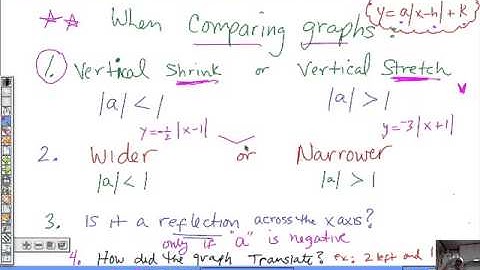 When Comparing graphs
y = a|x-h| + k
1. Vertical Shrink or Vertical Stretch
|a| < 1 |a| > 1
y = -½|x-1| y = -3|x+1|
2. Wider or Narrower
|a| < 1 |a| > 1
3. Is it a reflection across the x axis?
only if "a" is negative
4. How did the graph Translate? ex: 2 left and 1